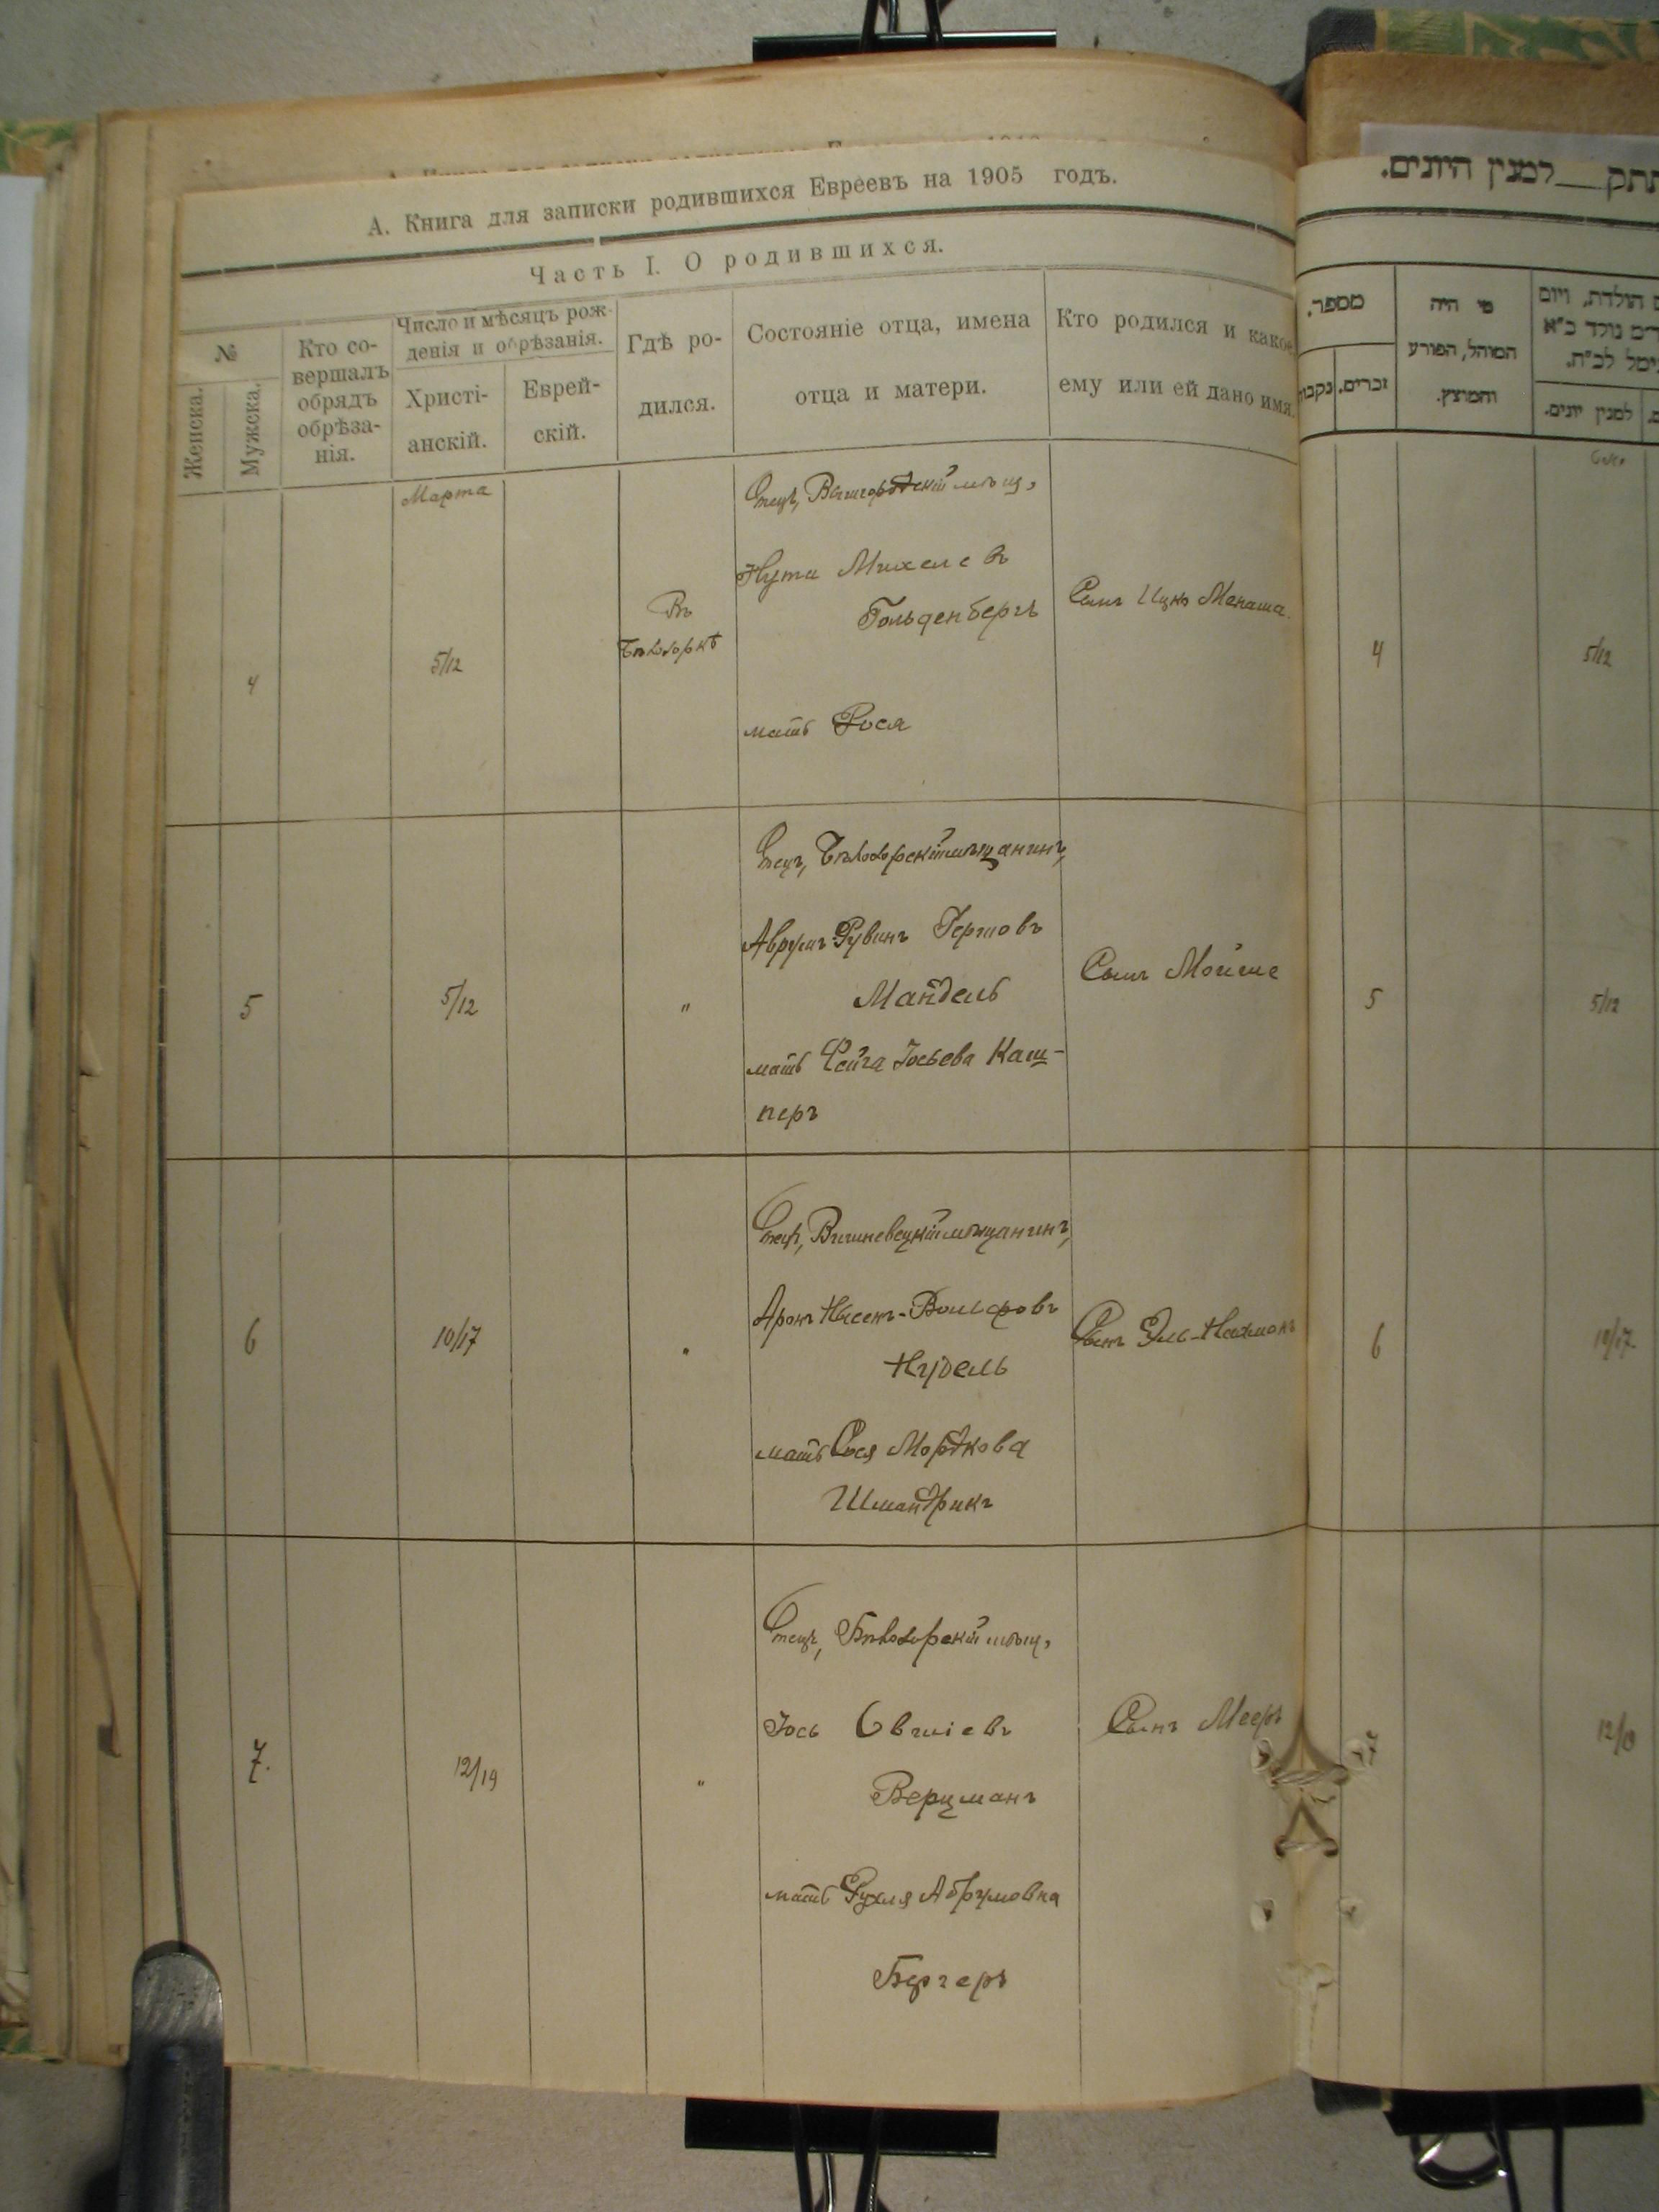 А. Книга для записки родившихся Евреевъ на 1905 годъ.
Часть I. О родившихся.
№
Женска.
Мужска.
Кто со-
вершалъ
обрядъ
обрѣза-
нія.
Число и мѣсяцъ рож-
денія и обрѣзанія.
Христі-
анскій.
Еврей-
скій.
Гдѣ ро-
дился.
Состояніе отца, имена
отца и матери.
Кто родился и какое
ему или ей дано имя.
Марта
4
5/12
Въ
Бѣлозоркѣ
Отецъ, Вышгородскій мѣщ,
Нута Михелевъ
Гольденбергъ
мать Рося
Сынъ Ицко Менаша.
5
5/12
"
Отецъ, Бѣлозорскій мѣщанинъ,
Аврумъ-Рувинъ Гершовъ
Мандель
мать Фейга Іосьева Каш-
перъ
Сынъ Мойше
6
10/17
"
Отецъ, Вишневецкій мѣщанинъ,
Аронъ Нысенъ-Вольфовъ
Нудель
мать Сося Мордкова
Шмандрикъ
Сынъ Эль-Нахманъ
7.
12/19
"
Отецъ, Бѣлозорскій мѣщ,
Іось Овшіевъ
Верцманъ
мать Рухля Абрумовна
Бергеръ
Сынъ Мееръ
למנין היונים.
מספר,
זכרים.
מי היה
המוהל, הפורע
והמוצץ.
הולדת, ויום
נולד כ"א
למנין יונים.
4
5/12
5
5/12
6
10/17
7